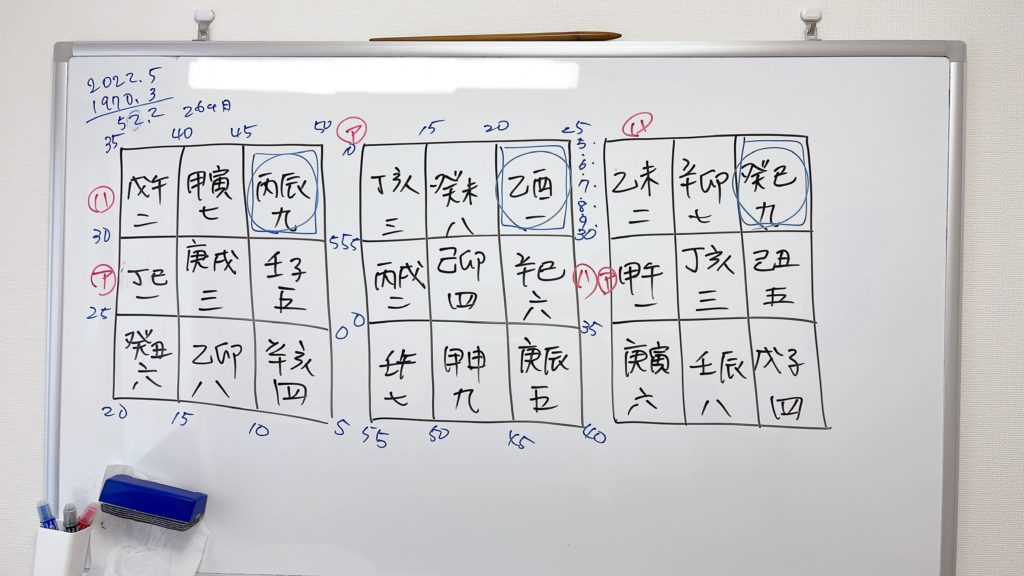 2022.5
1970.3
52.2
35 40 45 50
戊午 甲寅 丙辰
二 七 九
30
丁巳 庚戌 壬子
一 三 五
25
癸丑 乙卯 辛亥
六 八 四
20 15 10 5
10 15 20 25
丁亥 癸未 乙酉
三 八 一
5. 6. 7. 8. 9.
55 5 30
丙戌 己卯 辛巳
二 四 六
0 0 35
壬午 甲申 庚辰
七 九 五
55 50 45 40
乙未 辛卯 癸巳
二 七 九
甲午 丁亥 己丑
一 三 五
庚寅 壬辰 戊子
六 八 四